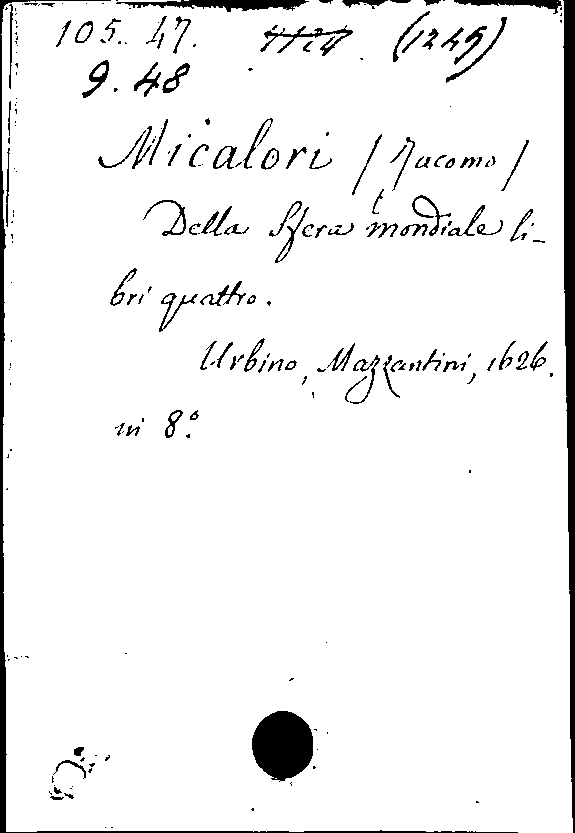 105. 47. (1249)
9. 48
Micalori / Jacomo /
Della Sfera mondiale li-
bri quattro.
Urbino, Mazzantini, 1626.
in 8.°